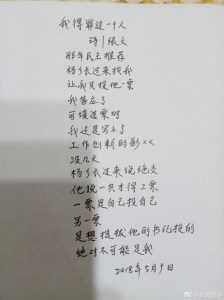 我得罪过一个人
诗/张文
那年民主推荐
杨乡长过来找我
让我只投他一票
我答应了
可填选票时
我还是写上了
工作创新的彭××
没几天
杨乡长过来说绝交
他说一共才得2票
一票是自己投自己
另一票
是想提拔他的书记投的
绝对不可能是我
2018年5月9日